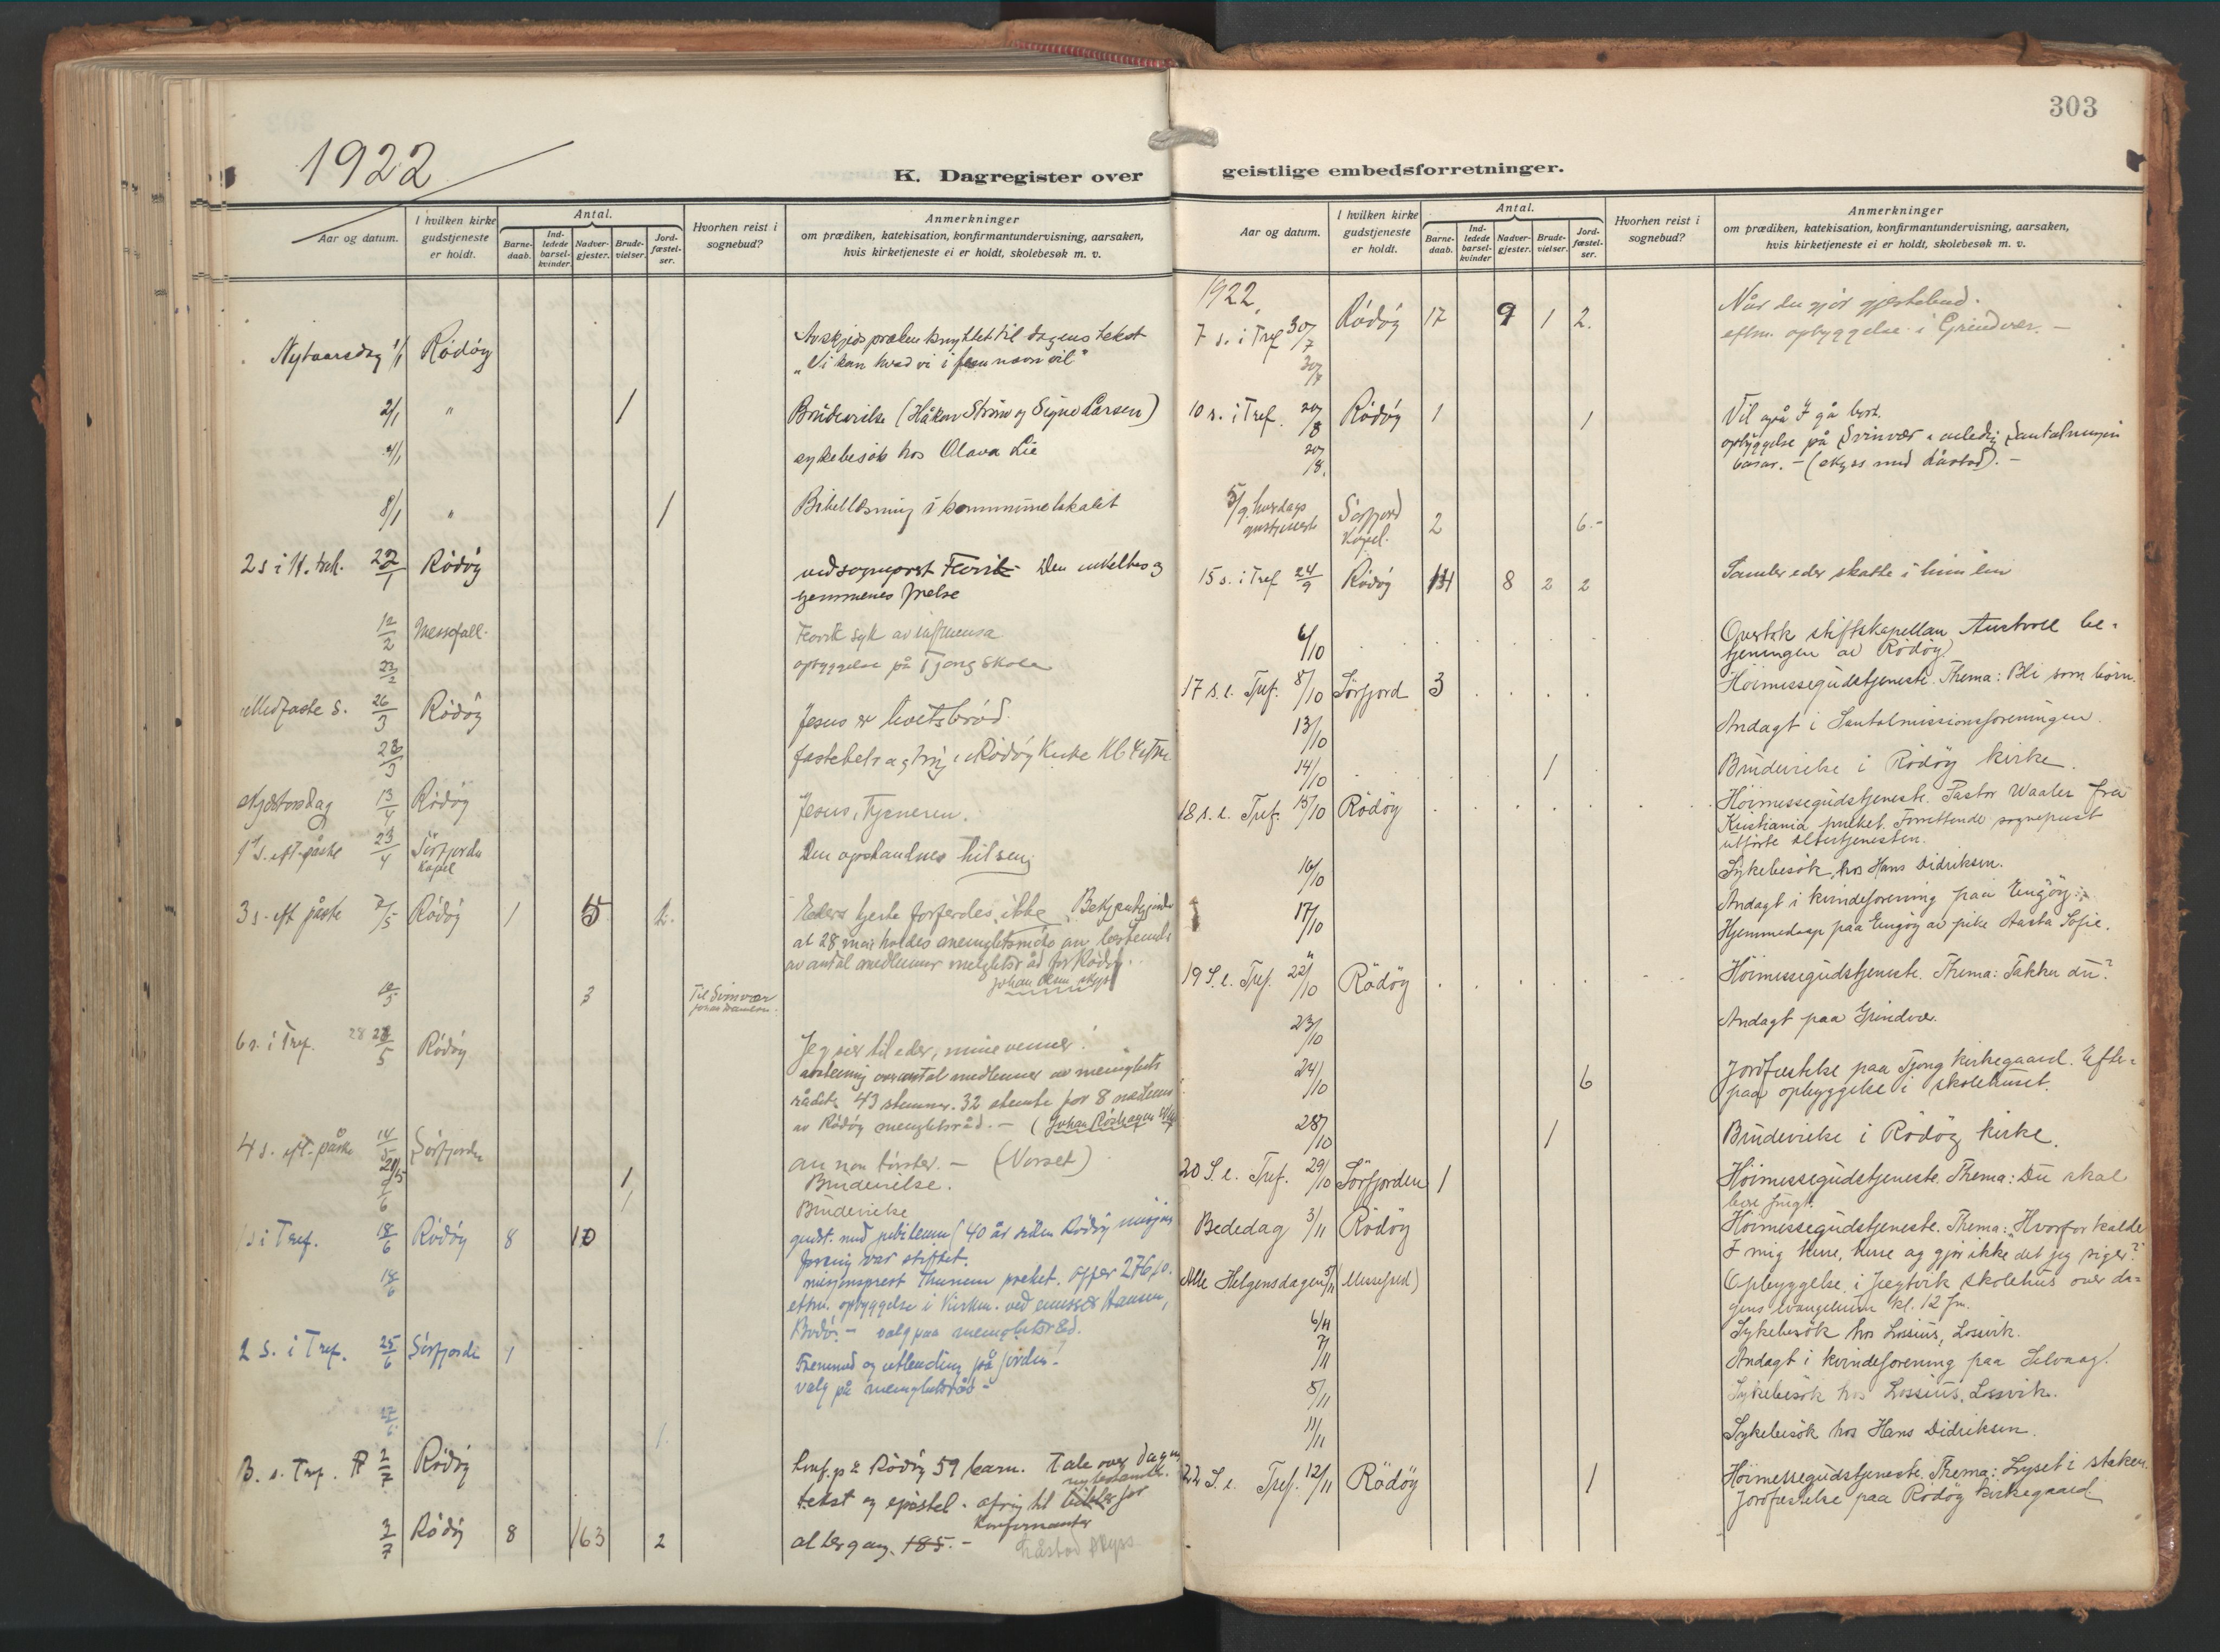 303
1922
K. Dagregister over
Aar og datum.
I hvilken kirke
gudstjeneste
er holdt.
Antal.
Barne-
daab.
Ind-
ledede
barsel-
kvinder.
Nadver-
gjester.
Brude-
vielser.
Jord-
fæstel-
ser.
Hvorhen reist i
sognebud?
Anmerkninger
om prædiken, katekisation, konfirmantundervisning, aarsaken,
hvis kirketjeneste ei er holdt, skolebesøk m. v.
Nytaarsdag 1/1 Rödöy Avskjedspræken knyttet til dagens tekst
"Vi kan hvad vi i Jesu navn vil"
2/1 " 1 Brudevielse (Håkon Ström og Signe Larsen)
4/1 sykebesök hos Olava Lie
8/1 " 1 Bibellæsning i kommunelokalet
2 s i H. trek. 22/1 Rödöy ved sogneprest Den enkeltes og
hjemmenes frelse
12/2 Messefall. syk av influensa
22/2 opbyggelse på Tjong skole
Midfaste s. 26/3 Rödöy Jesus er livetsbröd.
28/3 i Rödöy Kirke
Skjærtorsdag 13/4 Rödöy Jesus, Tjeneren.
1 s. eft. påske 23/4 Sörfjorden
Kapel
Den opstandnes hilsen
3 s. eft påske 7/5 Rödöy 1 5 2. Eders hjerte forferdes ikke.
at 28 mai holdes menighetsmöte
av antal medlemmer menighetsråd for Rödöy.
Johan Olsen skyss
10/5 3 Til Svinvær
6 s. i Tref. 28/5 Rödöy Jeg sier til eder, mine venner!
avstemning om antal medlemmer av menighets
rådet. 43 stemmer. 32 stemte for 8 medlemm
av Rödöy menighetsråd. –
4 s. eft. påske 14/5 Sörfjorden (Norset)
20/5 1 Brudevielse.
6/6 1 Brudevielse
1 s i Tref. 18/6 Rödöy 8 10 gudst. med jubileum (40 år siden Rödöy misjons
forening var stiftet.
18/6 misjonsprest Thunem preket. Offer 276,10.
eftm. opbyggelse i kirken. ved emissær Hansen,
Bodö. – valg paa menighetsråd.
2 S. i Tref. 25/6 Sörfjorden 1 Fremmed og utlending på jorden!
valg på menighetsråd –
27/6 1
3. s. Tref. 2/7 Rödöy konf. på Rödöy 59 barn. Tale over dagens
tekst og epistel.
konfirmanter
3/7 Rödöy 8 163 2 altergang. 185. – Låstad skyss
geistlige embedsforretninger.
Aar og datum.
I hvilken kirke
gudstjeneste
er holdt.
Antal.
Barne-
daab.
Ind-
ledede
barsel-
kvinder
Nadver-
gjester.
Brude-
vielser.
Jord-
fæstel-
ser.
Hvorhen reist i
sognebud?
Anmerkninger
om prædiken, katekisation, konfirmantundervisning, aarsaken,
hvis kirketjeneste ei er holdt, skolebesøk m. v.
1922.
7 s. i Tref 30/7 Rödöy 17 9 1 2. Når du gjör gjestebud.
30/7 eftm. opbyggelse i Grindvær. –
10 s. i Tref. 20/8 Rödöy 1 1 Vil også I gå bort.
20/8. opbyggelse på Svinvær
basar. – (skyss med Låstad). –
5/9. hverdags
gudstjeneste
Sörfjord
Kapel. 2 6. –
15 s. i Tref 24/9 Rödöy 14 8 2 2 Samler eder skatte i himlen
6/10 Overtok stiftskapellan Austvoll be-
tjeningen av Rödöy.
17 s. e. Tref. 8/10 Sörfjord 3 Höimessegudstjeneste. Thema: Bli som börn.
13/10 Andagt i Santalmissionsforeningen.
14/10 1 Brudevielse i Rödöy kirke.
18 s. e. Tref. 15/10 Rödöy Höimessegudstjeneste. Pastor Waaler fra
Kristiania preket. Forrettende sogneprest
utförte altertjenesten.
16/10 Sykebesök hos Hans Didriksen.
17/10 Andagt i kvindeforening paa Engöy:
" Hjemmedaap paa Engöy av pike Aasta Sofie.
19 S. e. Tref. 22/10 Rödöy Höimessegudstjeneste. Thema: Takker du?
23/10 Andagt paa Grindvær.
24/10 6 Jordfæstelse paa Tjong kirkegaard. Efter-
paa opbyggelse i skolehuset.
28/10 1 Brudevielse i Rödöy kirke.
20 S. e. Tref. 29/10 Sörfjorden 1 Höimessegudstjeneste. Thema: Du skal
bære frugt.
Bededag 3/11 Rödöy Höimessegudstjeneste. Thema: "Hvorfor kalder
I mig Herre, Herre og gjör ikke det jeg siger?"
Alle Helgensdagen 5/11 (Messefald) Opbyggelse i Jegtvik skolehus over da-
gens evangelium kl. 12 fm.
6/11 Sykebesök hos Lossius, Lossvik.
7/11 Andagt i kvindeforening paa Selvaag.
8/11 Sykebesök hos Lossius, Lossvik.
11/11 Sykebesök hos Hans Didriksen.
22 S. e. Tref. 12/11 Rödöy 1 Höimessegudstjeneste. Thema: Lyset i staken.
Jordfæstelse paa Rödöy kirkegaard.